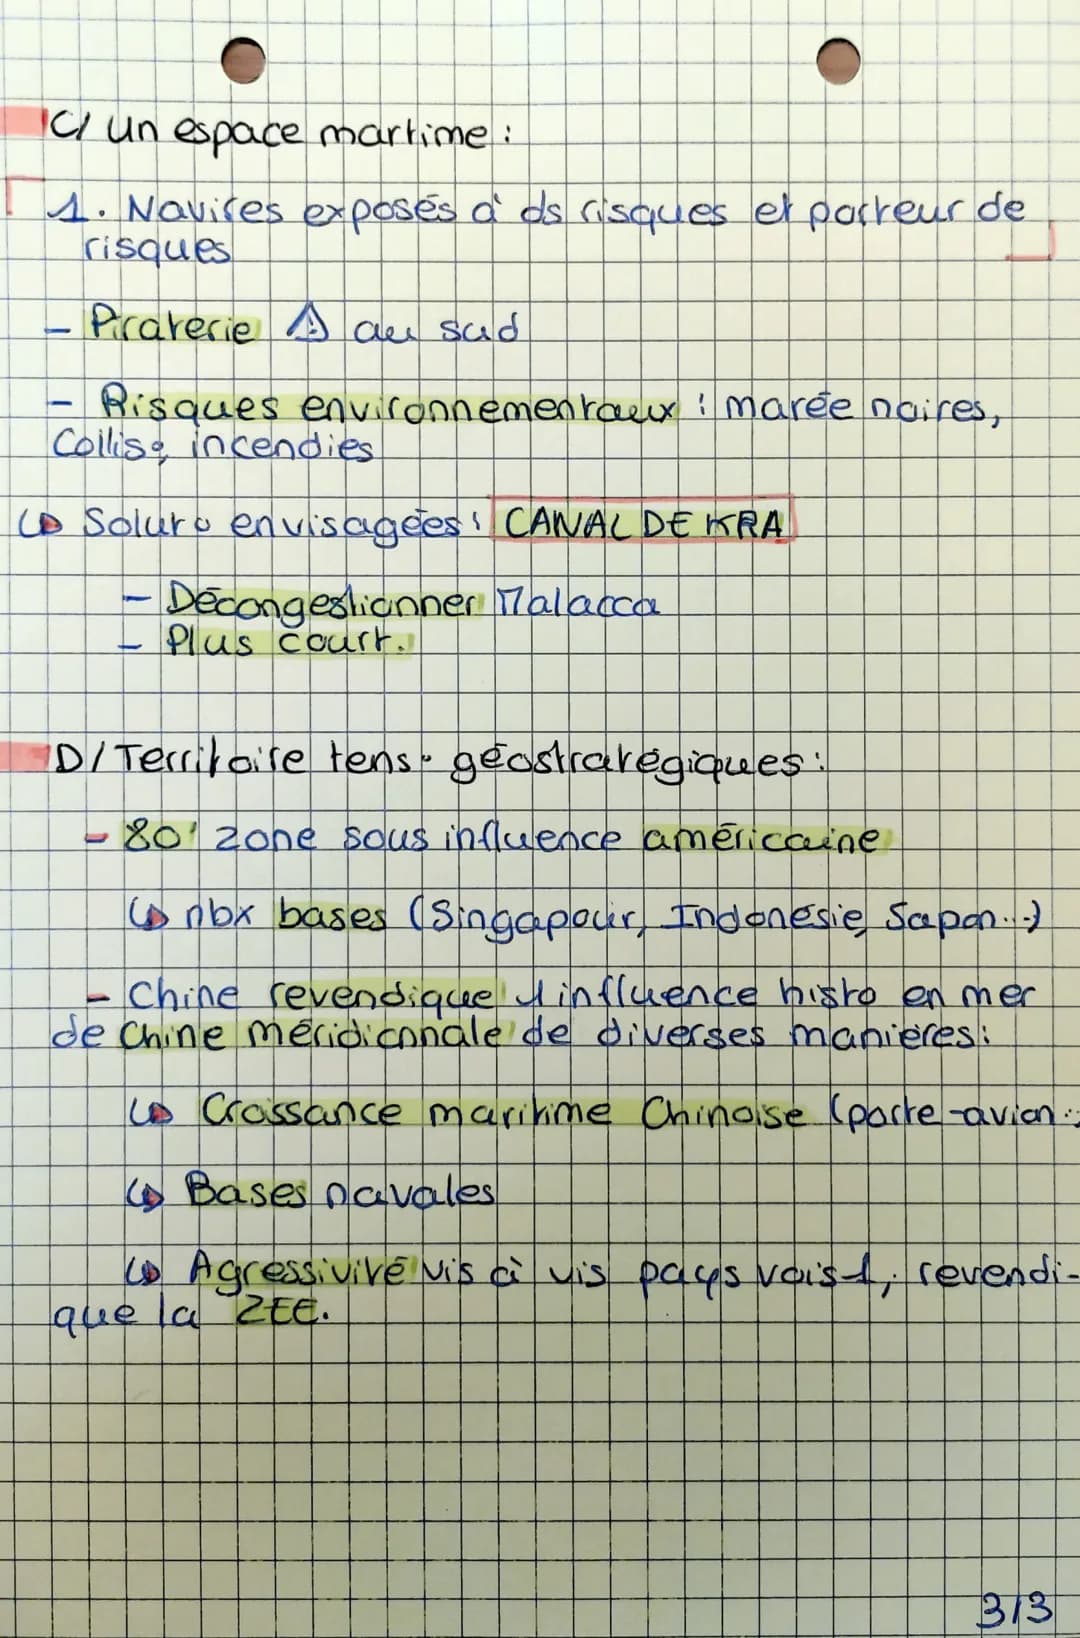 C/ un espace martime :
1. Navires exposés à ds risques et porteur de
risques
- Piraterie ⚠ au sud
- Risques environnementaux : marée noires,
Collis°, incendies
↳ Solut° envisagées : CANAL DE KRA
- Décongestionner Malacca
- Plus court.
D/ Territoire tens° géostratégiques :
- 80' zone sous influence américaine
↳ nbx bases (Singapour, Indonésie, Japon...)
- Chine revendique 1 influence histo en mer
de Chine méridionnale de diverses manières :
↳ Croissance maritime Chinoise (porte-avion..
↳ Bases navales
↳ Agressivité vis à vis pays vois1, revendi-
que la ZEE.
3/3